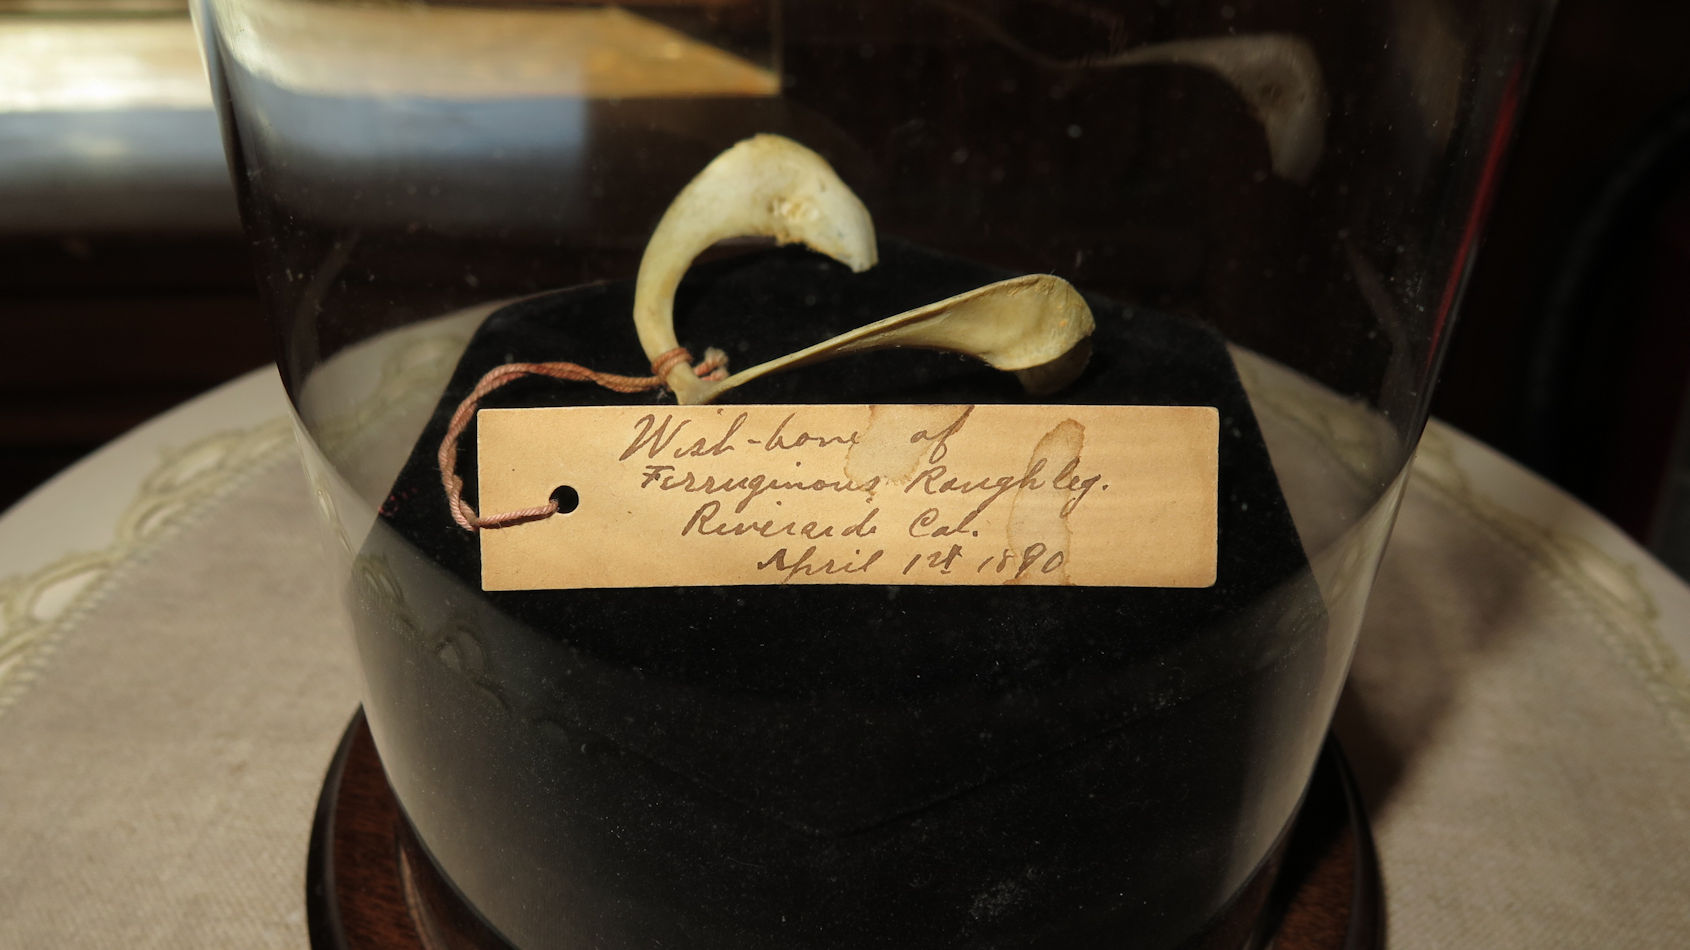 Wish-bone of
Ferruginous Roughleg.
Riverside Cal.
April 1st 1890